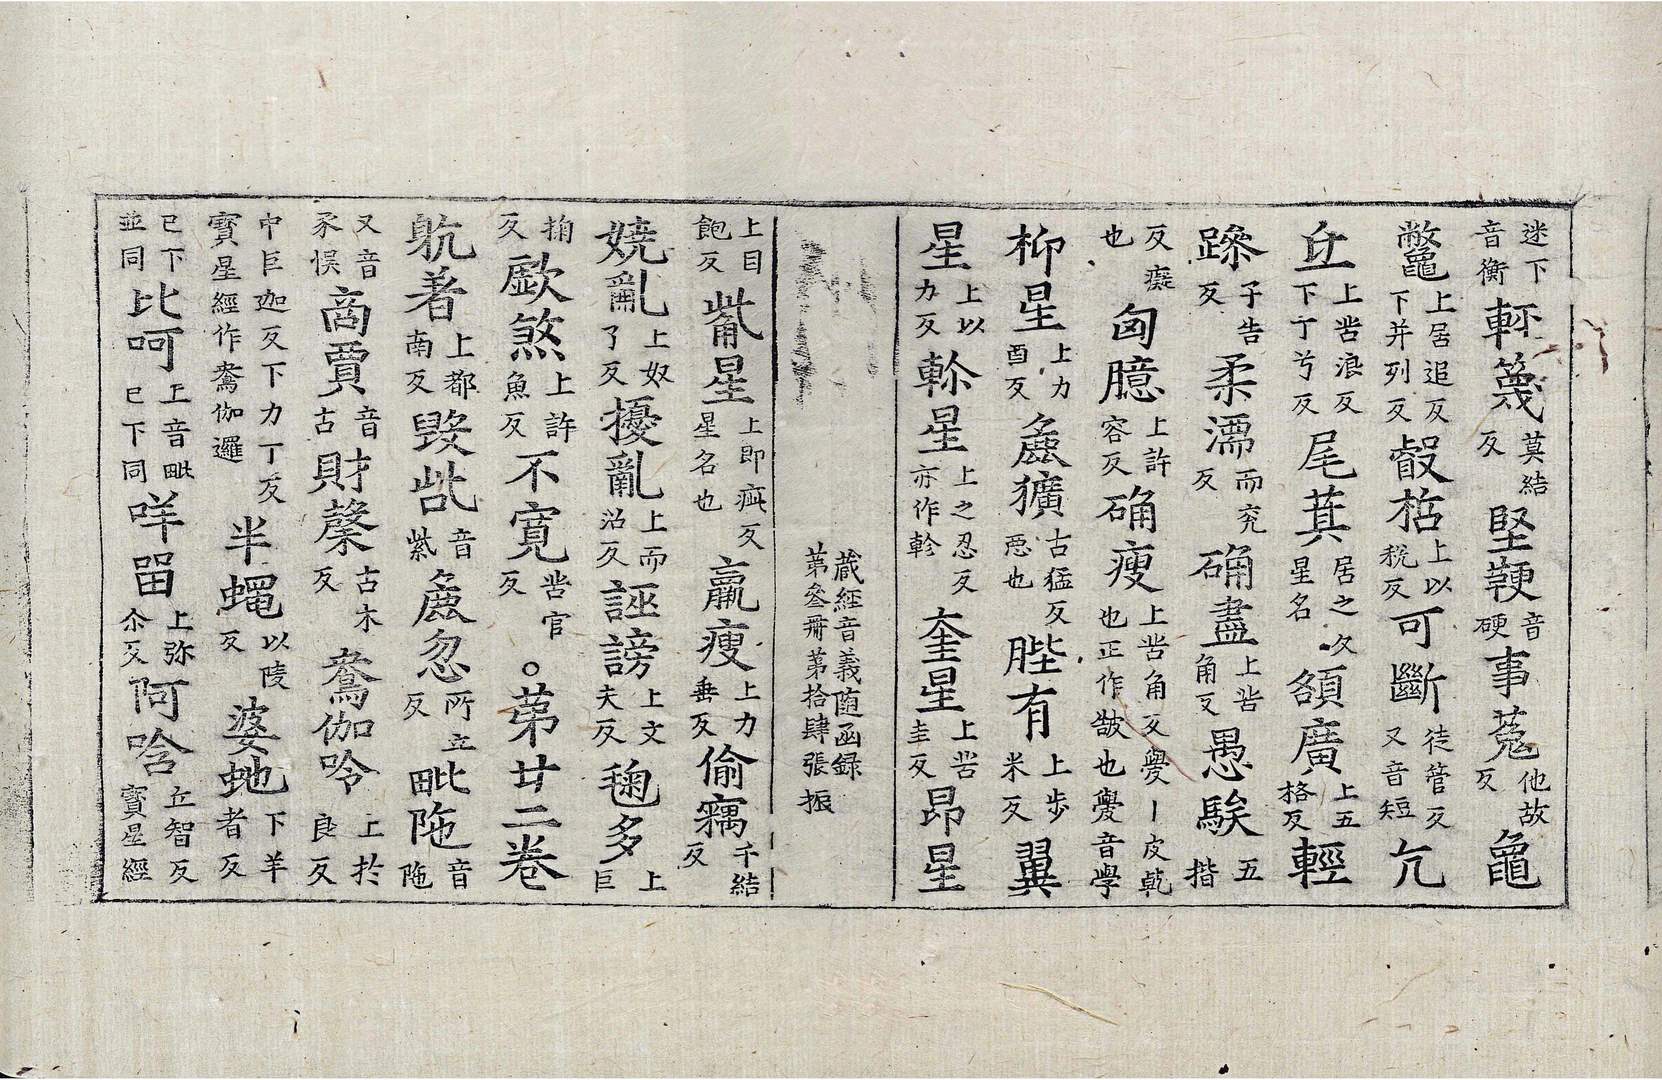 迷下音衡軶篾莫結反堅鞕音硬事菟他故反龜
鼈上居追反下并列反叡栝上以稅反可斷徒管反又音短亢
㡯上苦浪反下丁兮反尾萁居之反星名頟廣上五格反輕
躁子告反柔濡而兖反确盡上苦角反愚騃五揩
反癡也匈臆上許容反确瘦上苦角反㽮丨皮乾也正作㱿也㽮音學
柳星上力酉反麁獷古猛反惡也䏶有上步米反翼
星上以力反軫星上之忍反亦作軫奎星上苦圭反昴星
藏經音義隨函録第叄冊第拾肆張振
上目飽反觜星上即㽷反星名也羸瘦上力垂反偷竊千結反
嬈亂上奴了反擾亂上而沼反誣謗上文夫反毱多上巨
掬反歔煞上許魚反不寛苦官反。苐廿二卷
躭著上都南反毀呰音紫麁忽所立反毗陁音陁
又音豕悮商賈音古財㲄古木反鴦伽呤上於良反
中巨迦反下力丁反寳星經作鴦伽邏半蠅以陵反婆虵下羊者反
巳下並同比呵上音毗巳下同咩㽞上弥尒反阿唅丘智反寳星經